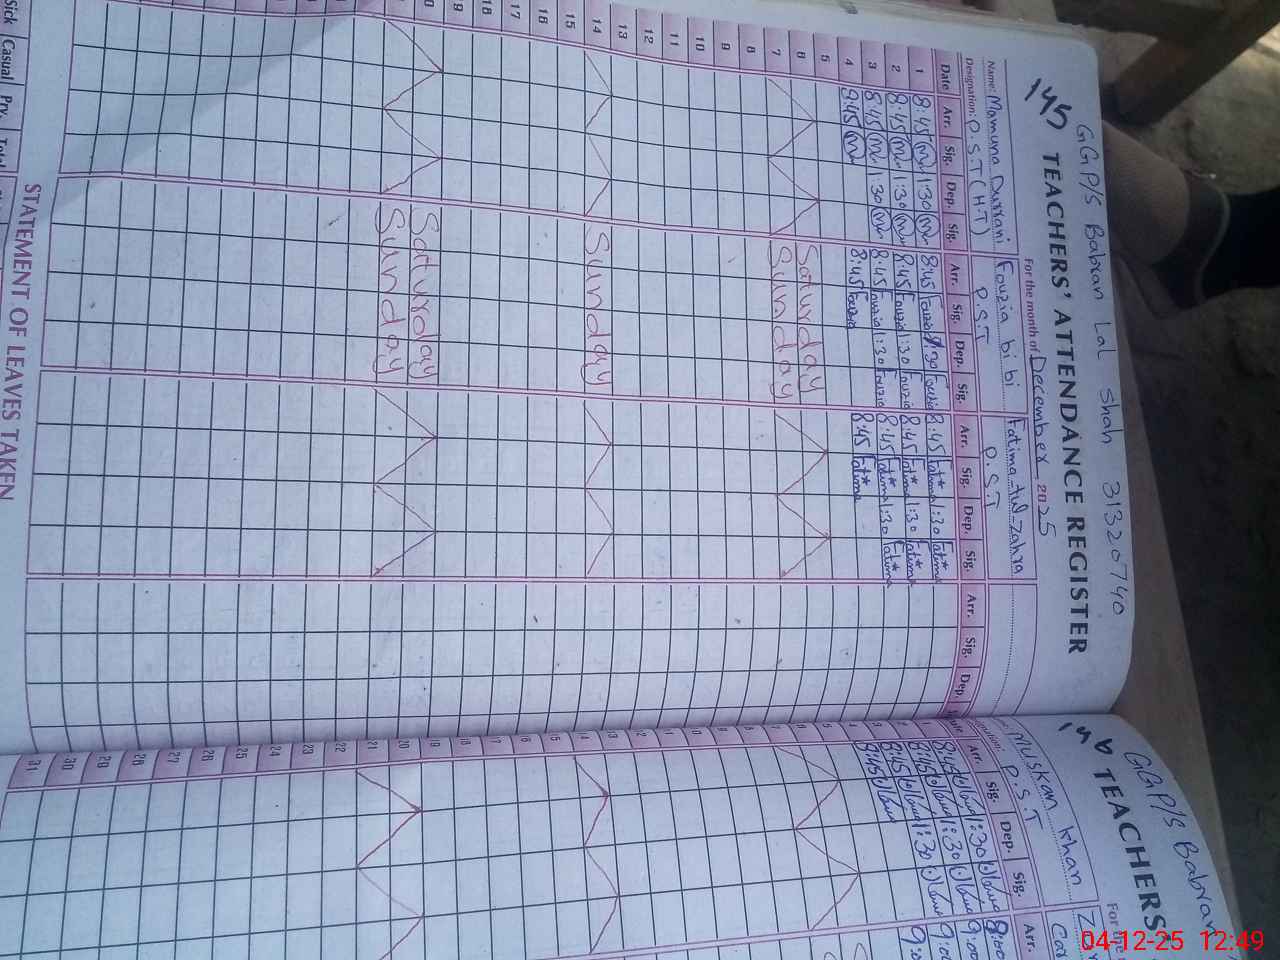 GGP/S Babran Lal Shah 31320740
145 TEACHERS' ATTENDANCE REGISTER
For the month of December 2025
Name: Mamuna Durrani Fouzia bi bi Fatima-tul-Zahra
Designation: P.S.T (H.T) P.S.T P.S.T
Date Arr. Sig. Dep. Sig. Arr. Sig. Dep. Sig. Arr. Sig. Dep. Sig. Arr. Sig. Dep.
1 8:45 m 1:30 m 8:45 Fouzia 1:30 Fouzia 8:45 Fatima 1:30 Fatima
2 8:45 m 1:30 m 8:45 Fouzia 1:30 Fouzia 8:45 Fatima 1:30 Fatima
3 8:45 m 1:30 m 8:45 Fouzia 1:30 Fouzia 8:45 Fatima 1:30 Fatima
4 8:45 m 8:45 Fouzia 8:45 Fatima
5
6 Saturday
7 Sunday
8
9
10
11
12
13
14 Sunday
15
16
17
18
19
20 Saturday
Sunday
STATEMENT OF LEAVES TAKEN
Sick Casual Prv. Total
GGP/S Babran
146 TEACHERS'
For the
Muskan Khan
P.S.T
Arr. Sig. Dep. Sig. Arr.
8:45 1:30 8:00
8:45 1:30 9:00
8:45 1:30 9:00
8:45
10
11
12
13
14
15
16
17
18
19
20
21
22
23
24
25
26
27
28
29
30
31
04-12-25 12:49